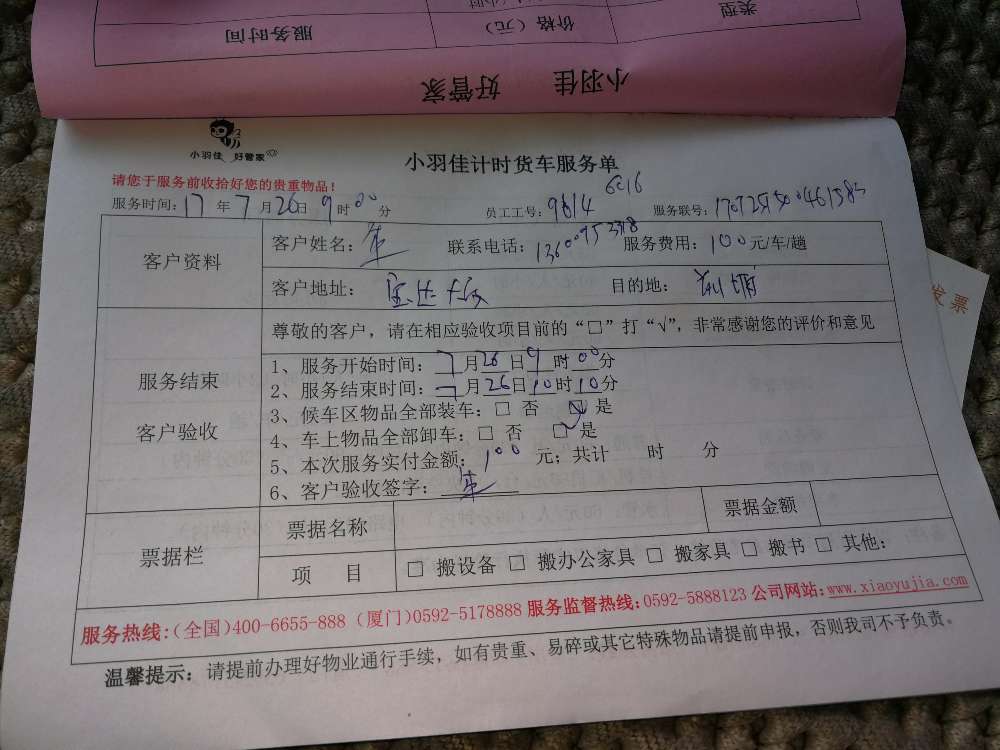 类型
价格（元）
服务时间
小羽佳 好管家
小羽佳 好管家
小羽佳计时货车服务单
请您于服务前收拾好您的贵重物品！
服务时间：17 年 7 月 26 日 9 时 00 分 员工工号：9614 6016 服务联号：
客户资料
客户姓名： 联系电话： 服务费用：100元/车/趟
客户地址： 目的地：
发票
服务结束
客户验收
尊敬的客户，请在相应验收项目前的“□”打“√”，非常感谢您的评价和意见
1、服务开始时间：7月26日9时00分
2、服务结束时间：7月26日10时10分
3、候车区物品全部装车：□ 否 ☑ 是
4、车上物品全部卸车：□ 否 ☑ 是
5、本次服务实付金额：100 元；共计 时 分
6、客户验收签字：
票据栏
票据名称 票据金额
项 目 □ 搬设备 □ 搬办公家具 □ 搬家具 □ 搬书 □ 其他：
服务热线：（全国）400-6655-888（厦门）0592-5178888 服务监督热线：0592-5888123 公司网站：www.xiaoyujia.com
温馨提示：请提前办理好物业通行手续，如有贵重、易碎或其它特殊物品请提前申报，否则我司不予负责。